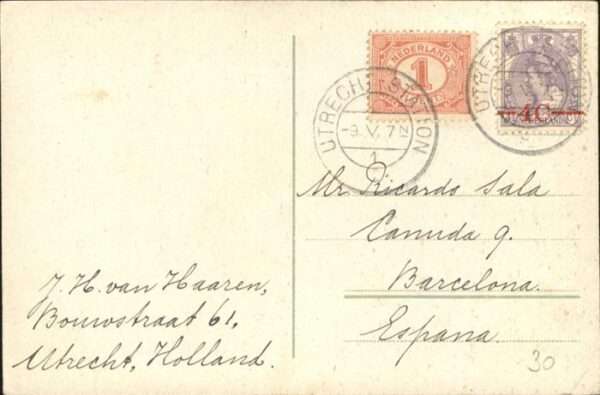 NEDERLAND
1
CENT
UTRECHT STATION
-9.V. 7N
1
UTRECH
4C
NEDERLAND
Mr. Ricardo Sala
Canuda 9.
Barcelona.
Espana.
J. H. van Haaren,
Bouwstraat 61,
Utrecht, Holland.
30